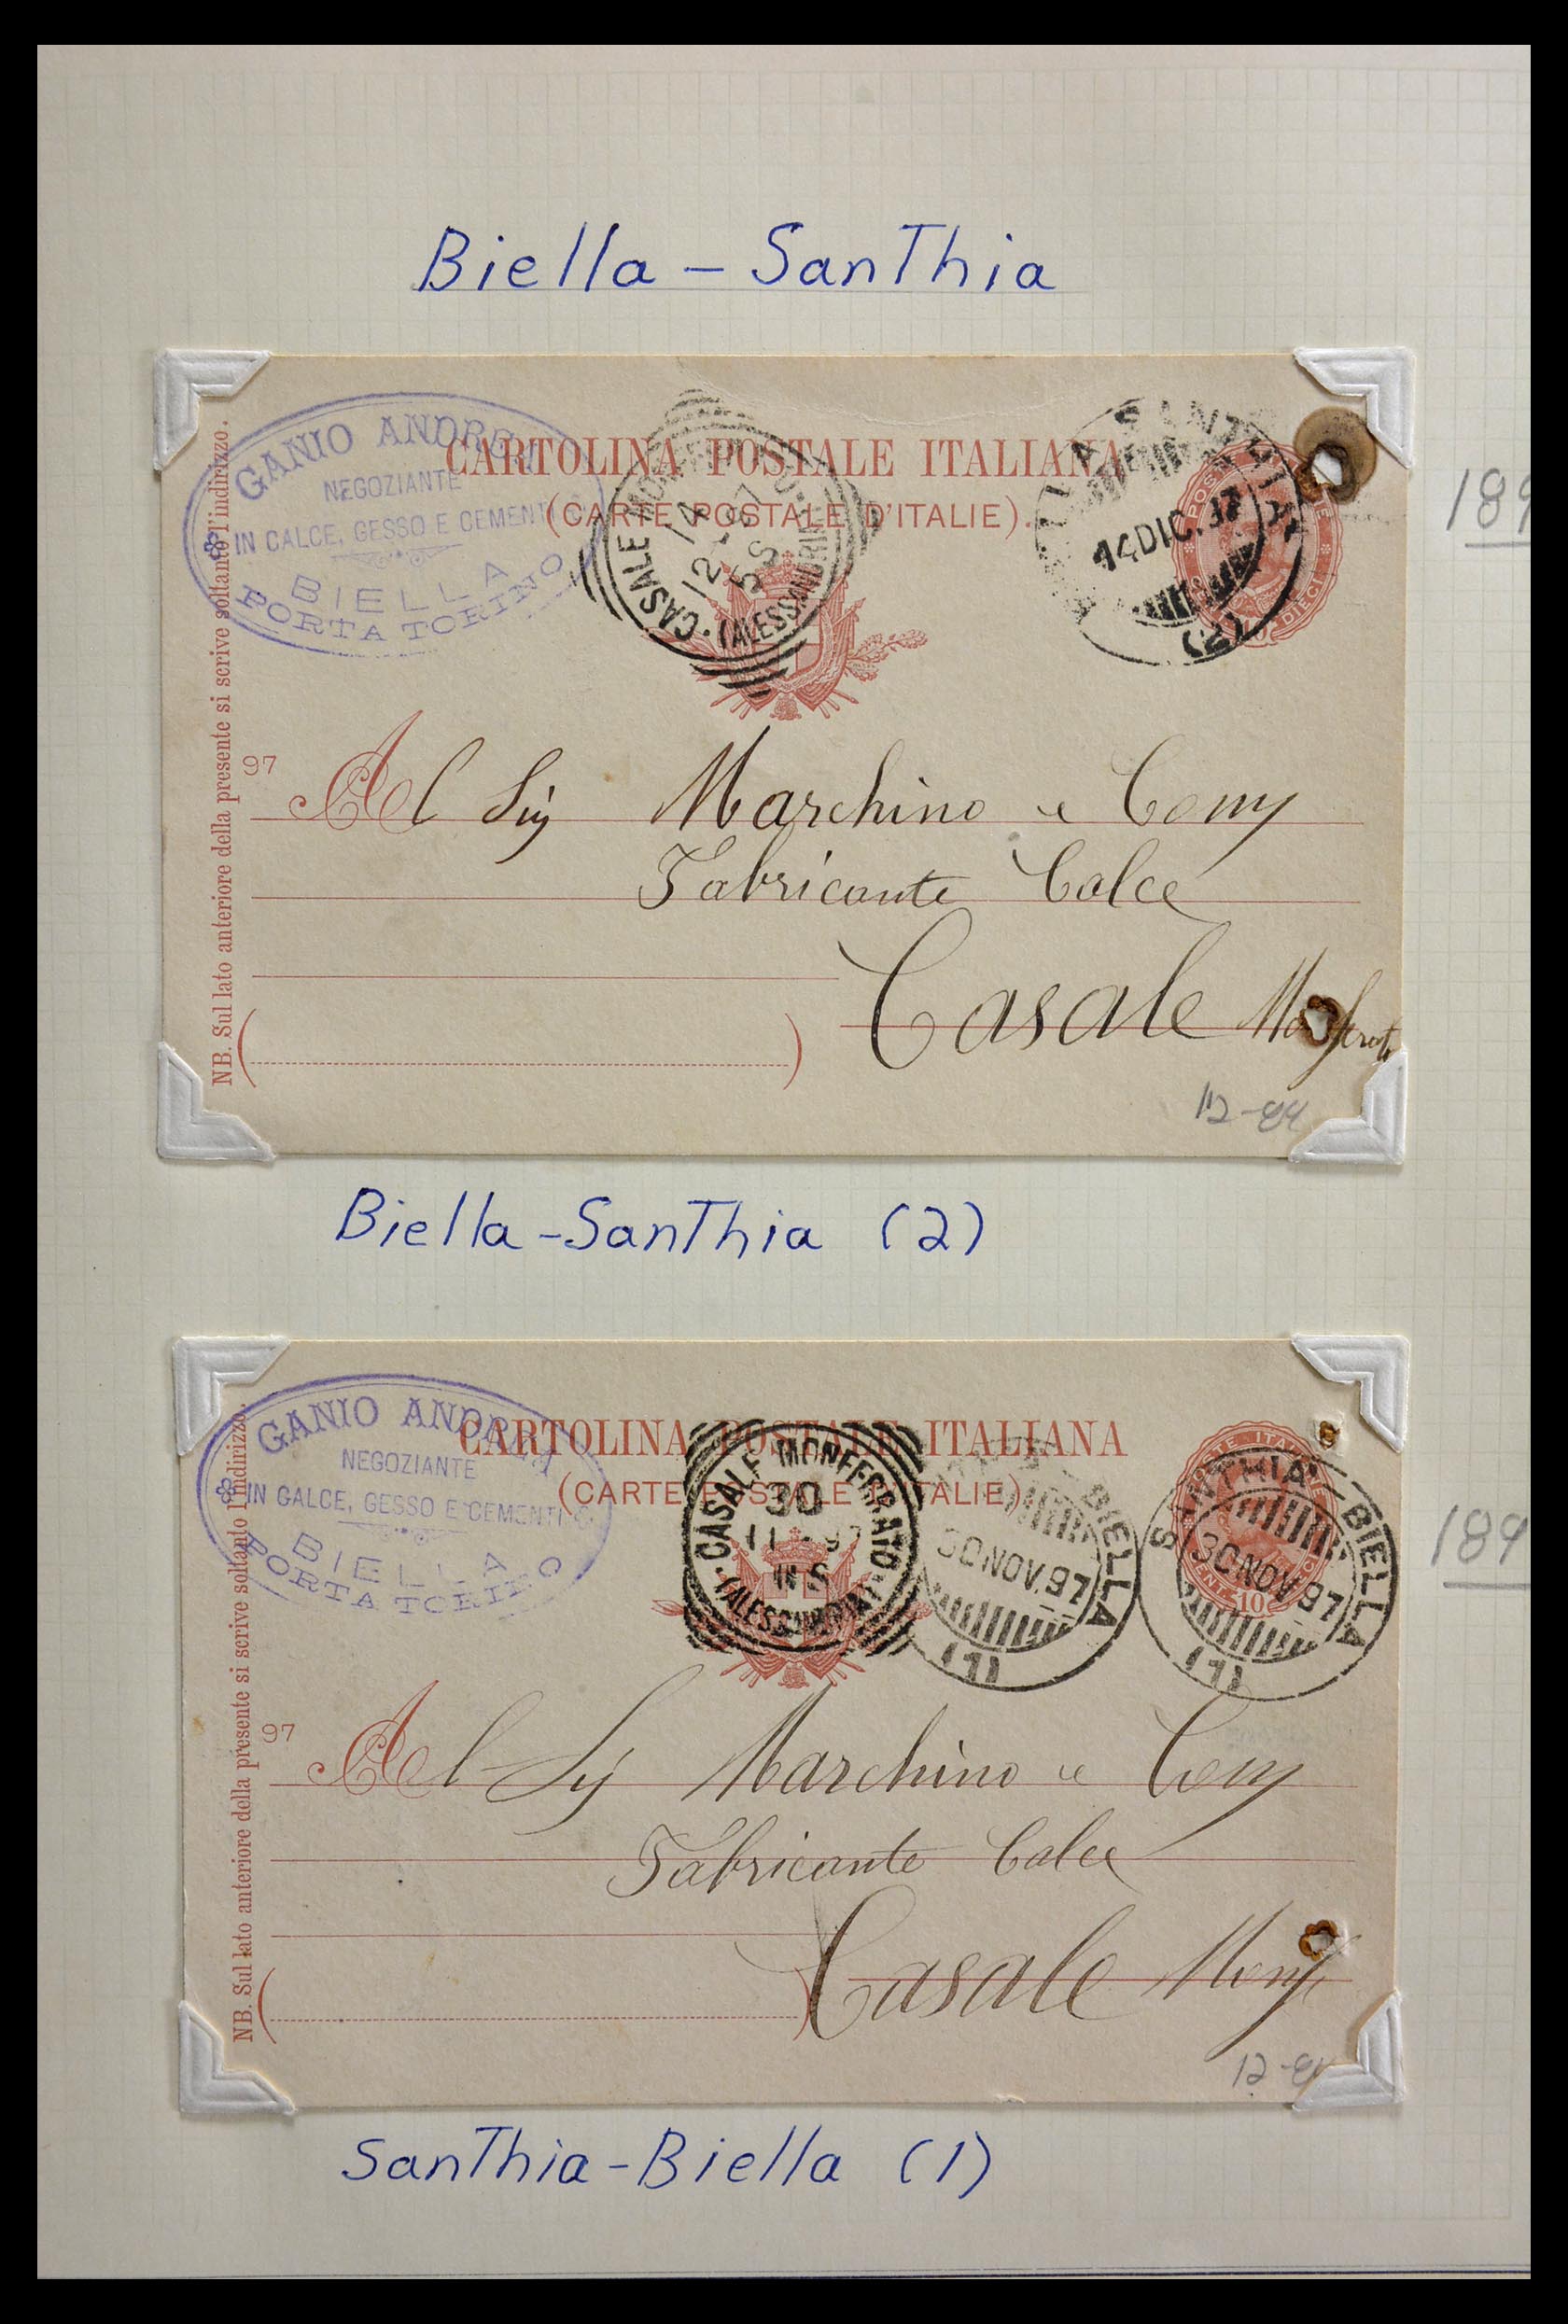 Biella – SanThia
GANIO ANDREA
NEGOZIANTE
IN CALCE, GESSO E CEMENTI
BIELLA
PORTA TORINO
CARTOLINA POSTALE ITALIANA
(CARTE POSTALE D'ITALIE).
CASALE
14
12-97
5S
(ALESSANDRIA)
SANTHIA
14 DIC. 97
(2)
POSTE
DIECI
NB. Sul lato anteriore della presente si scrive soltanto l'indirizzo.
97
Al Sig Marchino e Comp
Fabricante Calce
Casale Monferrato
189
Biella-SanThia (2)
GANIO ANDREA
NEGOZIANTE
IN CALCE, GESSO E CEMENTI
BIELLA
PORTA TORINO
CARTOLINA POSTALE ITALIANA
(CARTE POSTALE D'ITALIE).
CASALE MONFERRATO
30
11-97
S
(ALESSANDRIA)
BIELLA
30 NOV. 97
(1)
SANTHIA - BIELLA
30 NOV 97
(1)
POSTE ITALIANE
CENT. 10
NB. Sul lato anteriore della presente si scrive soltanto l'indirizzo.
97
Al Sig Marchino e Comp
Fabricante Calce
Casale Monf
189
SanThia-Biella (1)